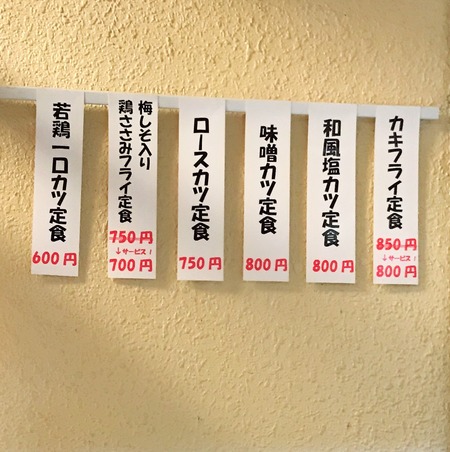 カキフライ定食
850円
↓サービス!
800円
和風塩カツ定食
800円
味噌カツ定食
800円
ロースカツ定食
750円
梅しそ入り
鶏ささみフライ定食
750円
↓サービス!
700円
若鶏一口カツ定食
600円